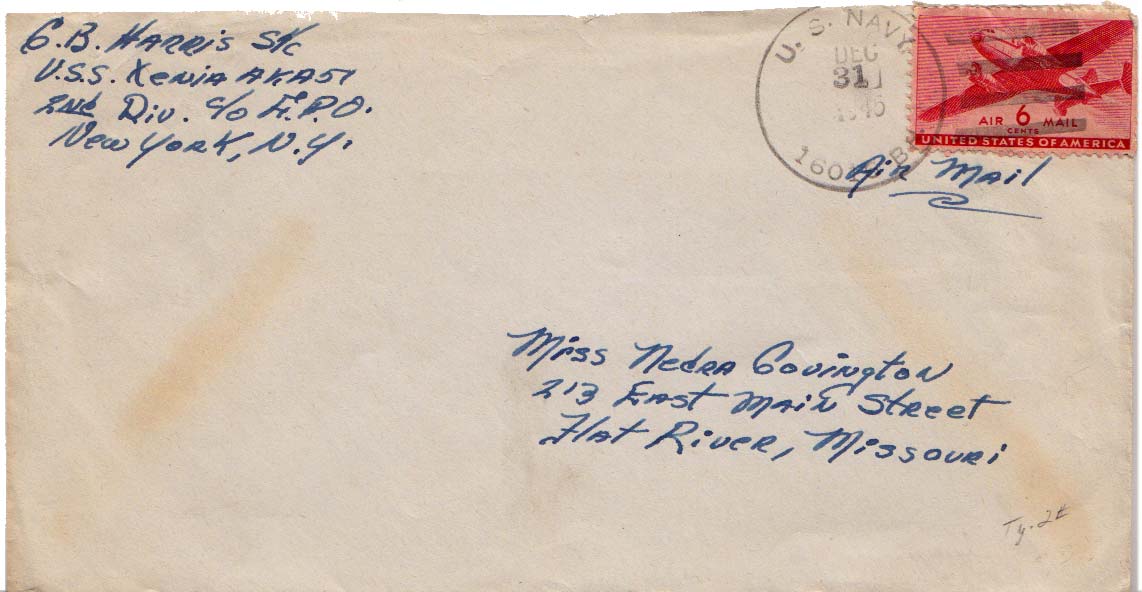 C.B. Harris S1/c
U.S.S. Xenia AKA51
2nd Div. c/o F.P.O.
New York, N.Y.
U. S. NAVY
DEC
31
BR.
AIR 6 MAIL
CENTS
UNITED STATES OF AMERICA
Air Mail
Miss Nedra Covington
213 East Main Street
Flat River, Missouri